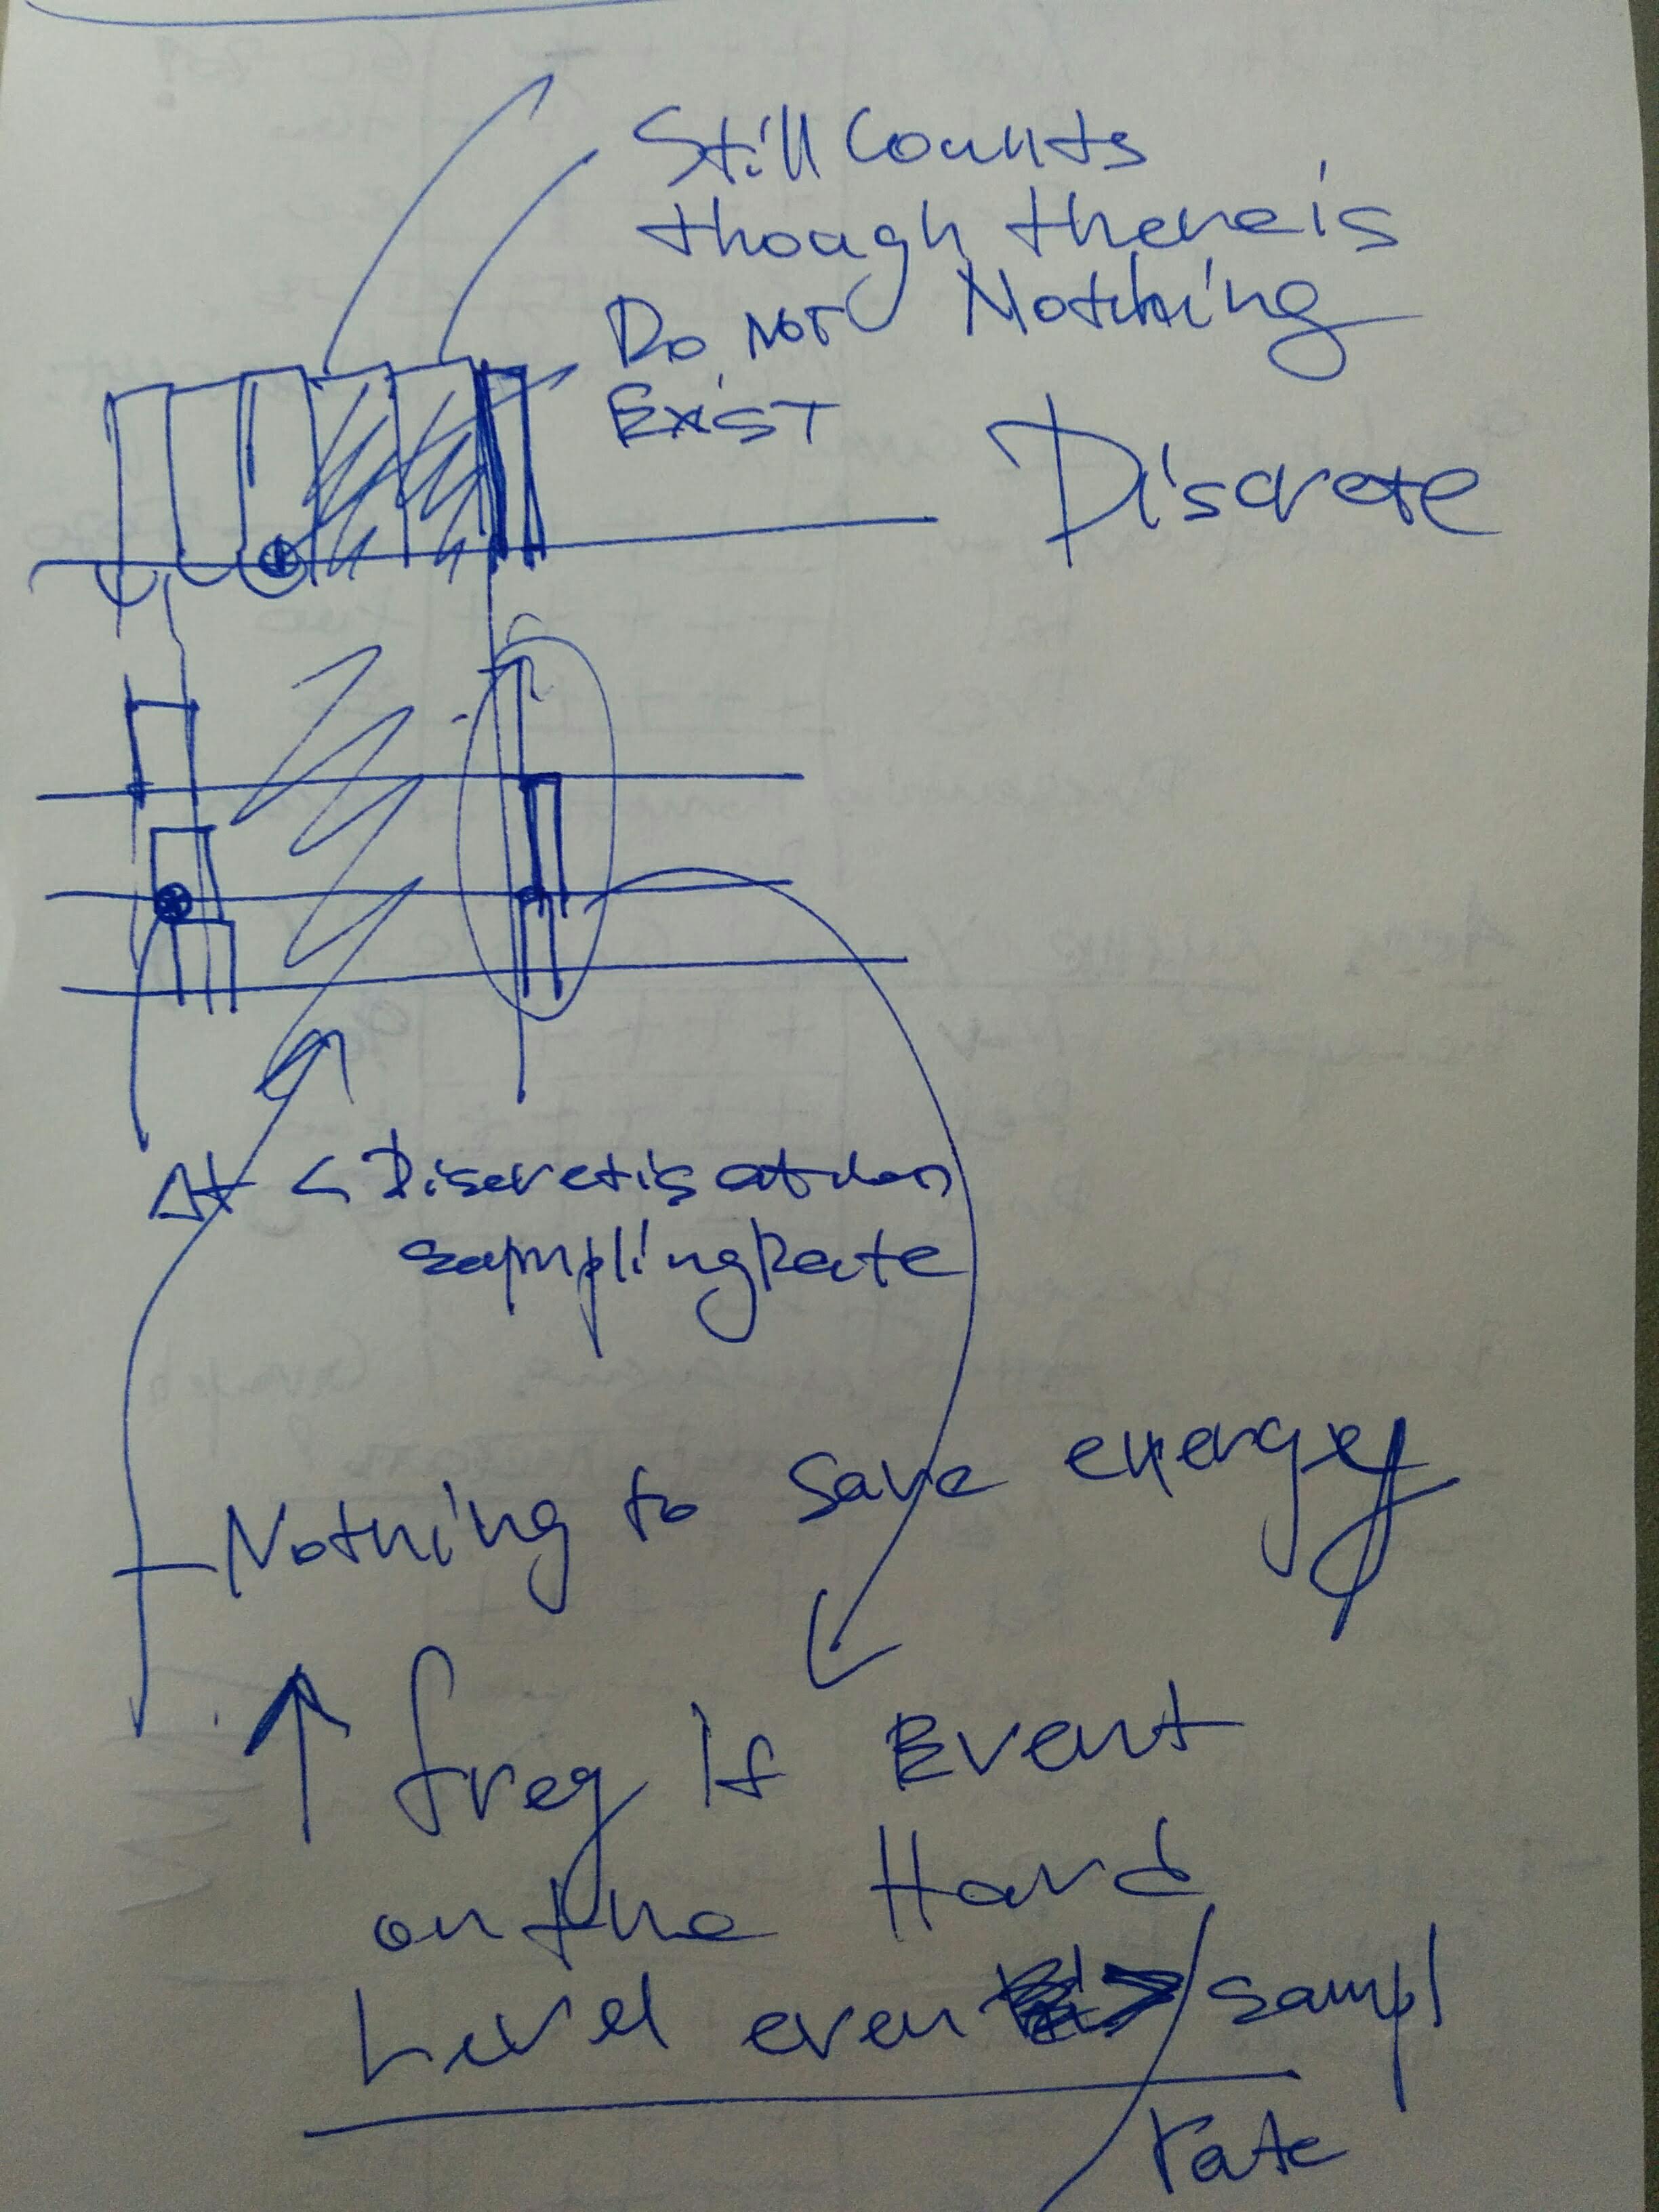 Still Counts
though there is
Nothing
Do not
Exist
Discrete
Δt < Discretisation
sampling Rate
Nothing to save energy
↑ freq If Event
on the Hard
Level even / sampl
rate